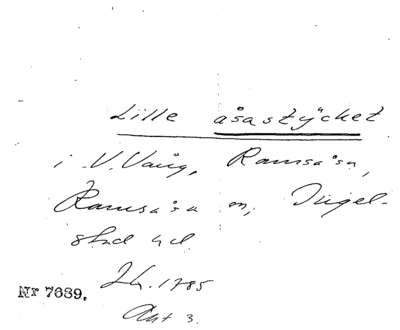 Lille åsastycket
i V. Vång, Ramsåsa,
Ramsåsa sn, Ingel-
stad hd
Sk. 1785
Nr 7689.
Akt 3.